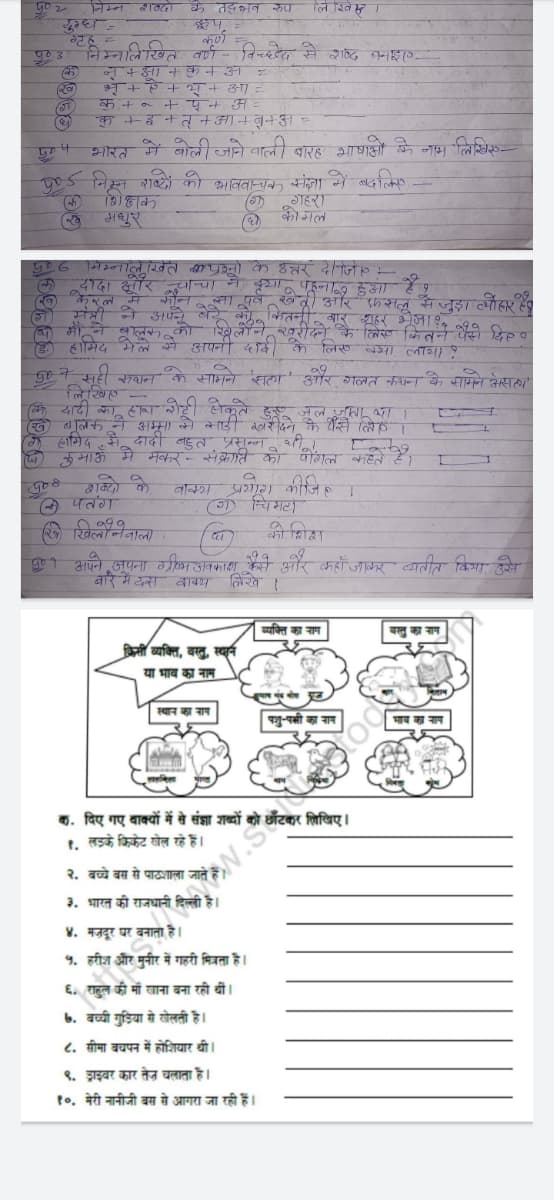 प्र०2 निम्न शब्दों के तद्भव रूप लिखिए।
दुग्ध =
गृह =
कर्ण =
प्र० 3 निम्नलिखित वर्ण - विच्छेद से शब्द बनाइए—
(क) न् + आ + क् + अ =
(ख)
(ग)
(घ)
प्र० 4 भारत में बोली जाने वाली बारह भाषाओं के नाम लिखिए—
प्र० 5 निम्न शब्दों को भाववाचक संज्ञा में बदलिए —
(क) शिक्षक (ग) गहरा
(ख) मधुर (घ) कोमल
प्र० 6 निम्नलिखित प्रश्नों के उत्तर दीजिए -
(क) दादा और चाचा ने क्या पहना हुआ है?
(ख) केरल में कौन सा पर्व खेती और फसल से जुड़ा त्योहार है?
(ग) मंत्री ने अपने बेटे को कितनी बार शहर भेजा?
(घ) माँ ने बालक को खिलौने खरीदने के लिए कितने पैसे दिए?
(ङ) हामिद मेले से अपनी दादी के लिए क्या लाया?
प्र० 7 सही कथन के सामने 'सत्य' और गलत कथन के सामने असत्य
लिखिए —
(क) दादी का हाथ रोटी सेकते हुए जल जाता था।
(ख) बालक ने अम्मा को साड़ी खरीदने के पैसे दिए।
(ग) हामिद से दादी बहुत प्रसन्न थी।
(घ) कुमाऊँ में मकर - संक्रांति को पोंगल कहते हैं।
प्र० 8 शब्दों के वाक्य प्रयोग कीजिए।
(क) पतंग (ग) चिमटा
(ख) खिलौनेवाला (घ) कोशिश
प्र० 9 आपने अपना ग्रीष्मअवकाश कैसे और कहाँ जाकर व्यतीत किया उसे
बारे में दस वाक्य लिखे।
किसी व्यक्ति, वस्तु, स्थान
या भाव का नाम
व्यक्ति का नाम
वस्तु का नाम
स्थान का नाम
पशु-पक्षी का नाम
भाव का नाम
क. दिए गए वाक्यों में से संज्ञा शब्दों को छाँटकर लिखिए।
१. लड़के क्रिकेट खेल रहे हैं।
२. बच्चे बस से पाठशाला जाते हैं।
३. भारत की राजधानी दिल्ली है।
४. मजदूर घर बनाता है।
५. हरीश और मुनीर में गहरी मित्रता है।
६. राहुल की माँ खाना बना रही थीं।
७. बच्ची गुड़िया से खेलती है।
८. सीमा बचपन में होशियार थी।
९. ड्राइवर कार तेज़ चलाता है।
१०. मेरी नानीजी बस से आगरा जा रही हैं।